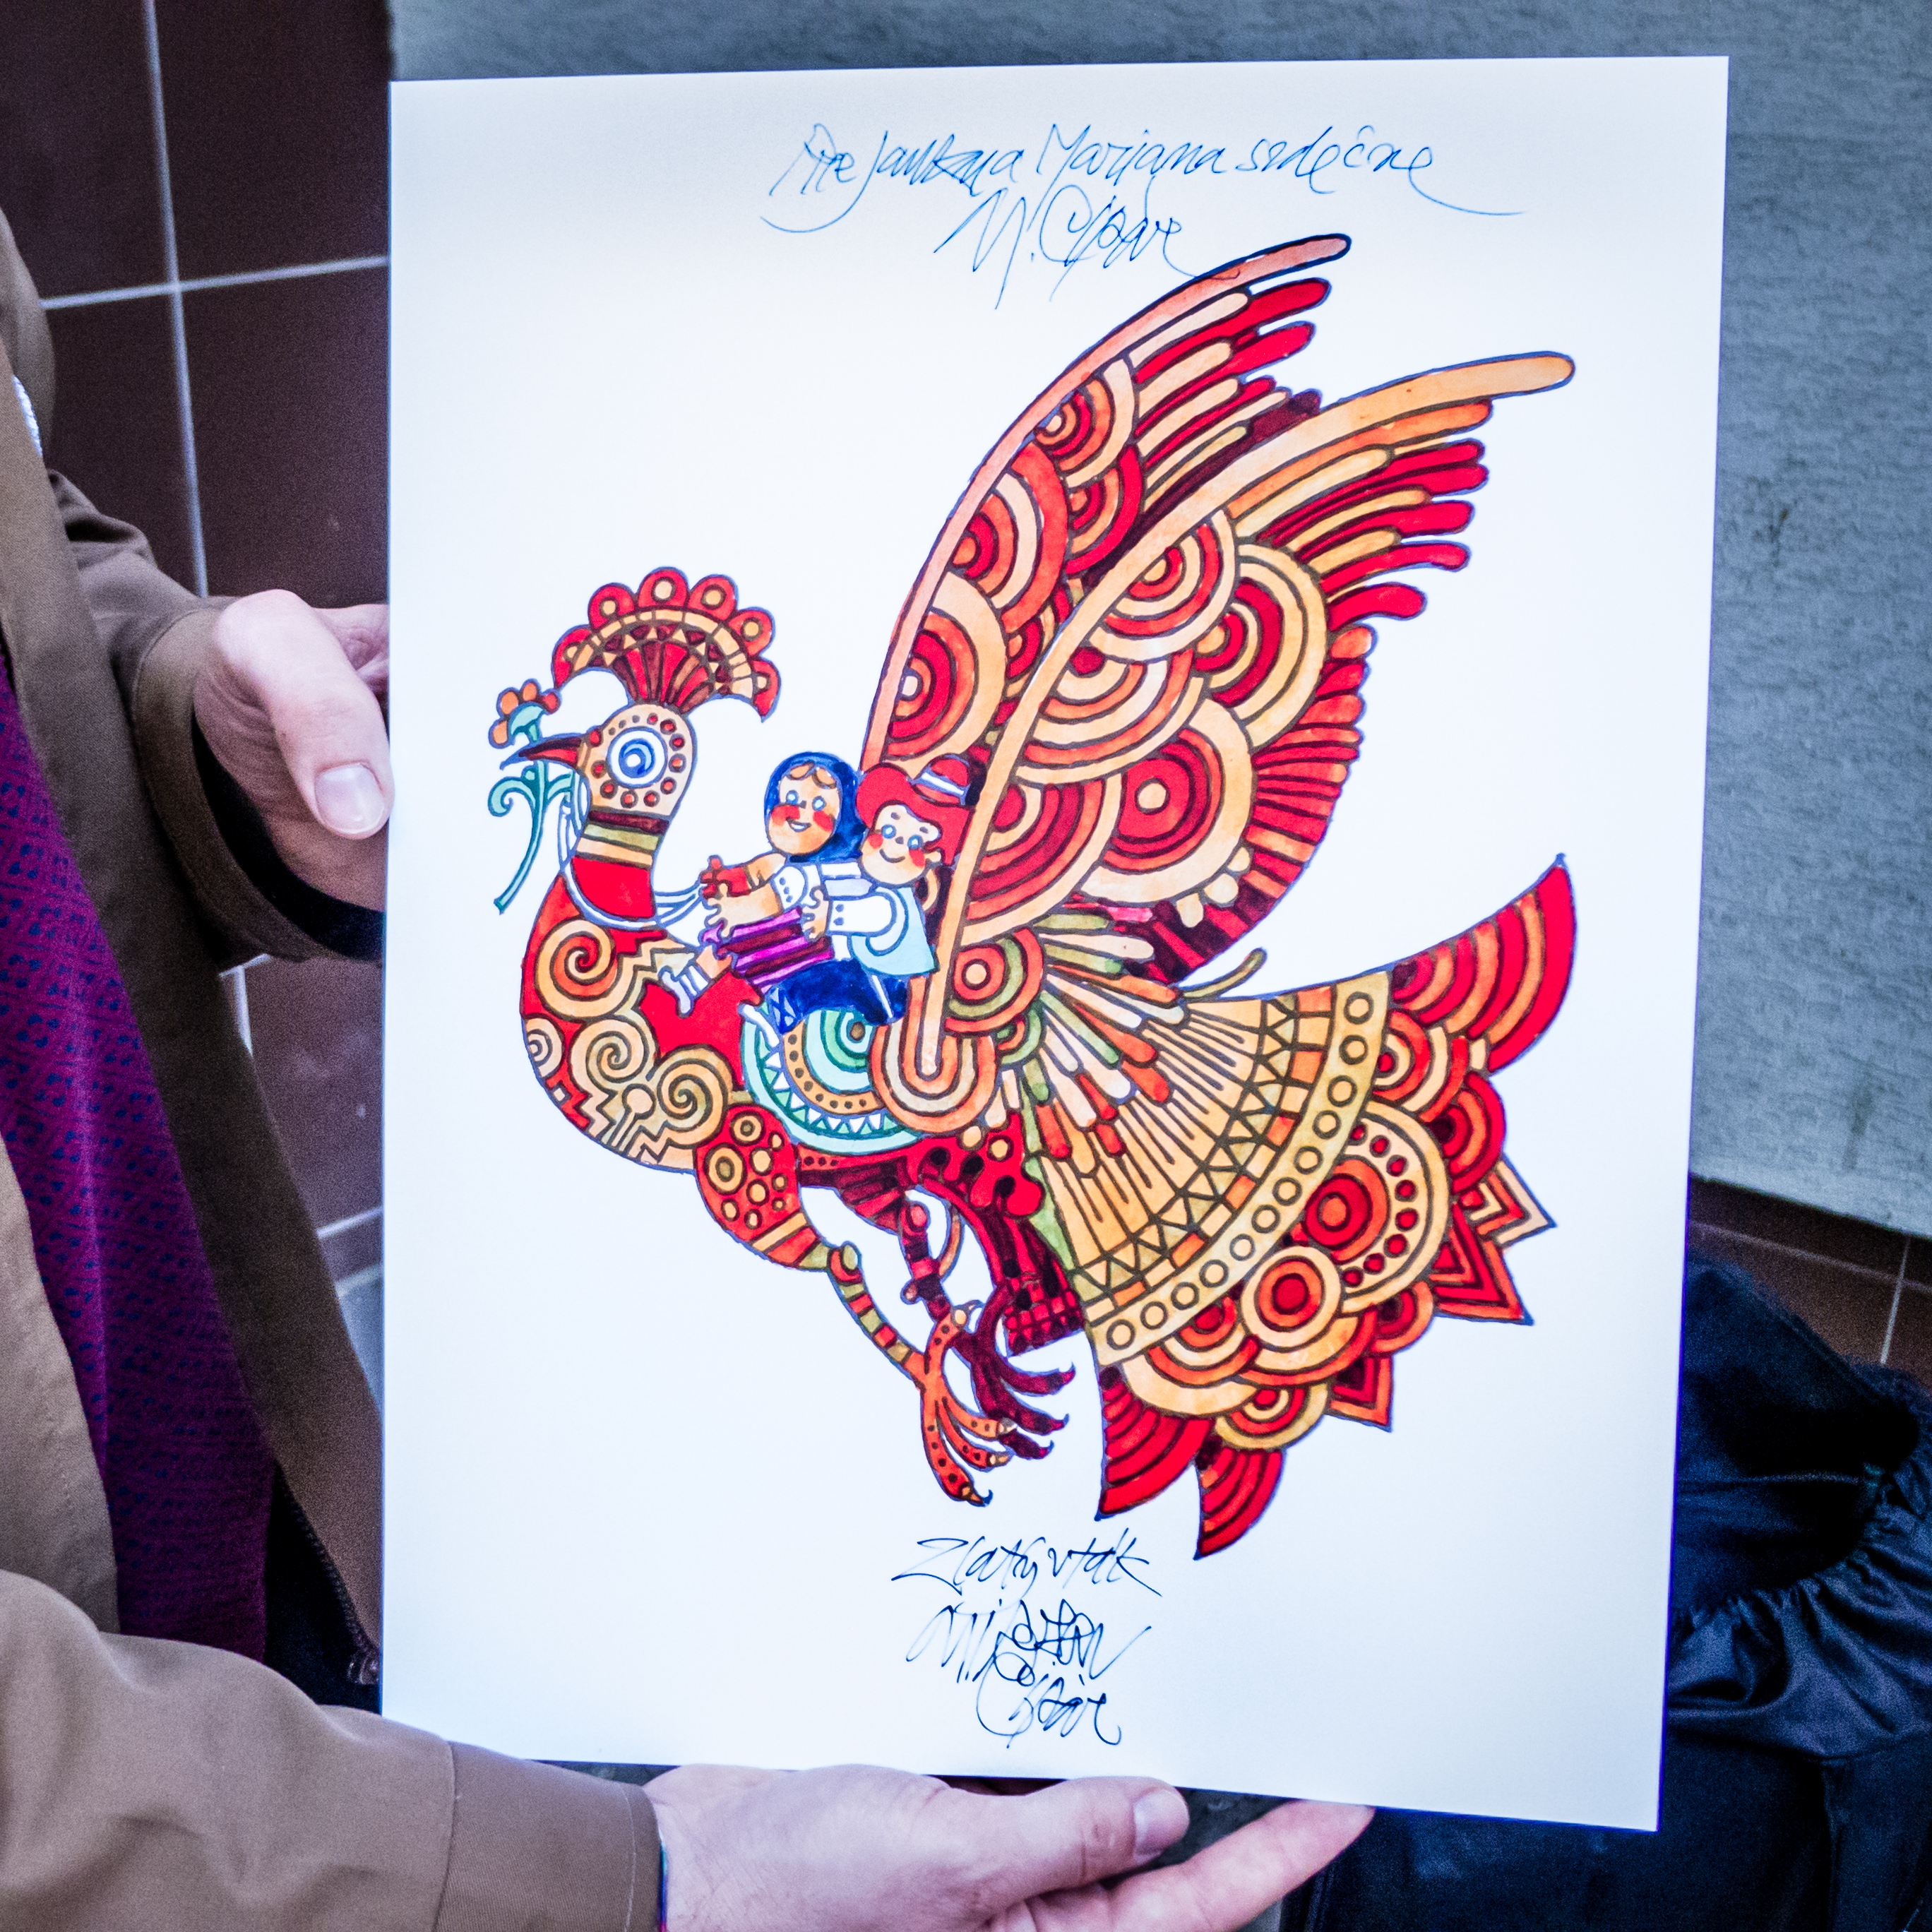 Pre Janka a Marjana srdečne
M. Cipár
Zlatý vták
Miroslav
Cipár